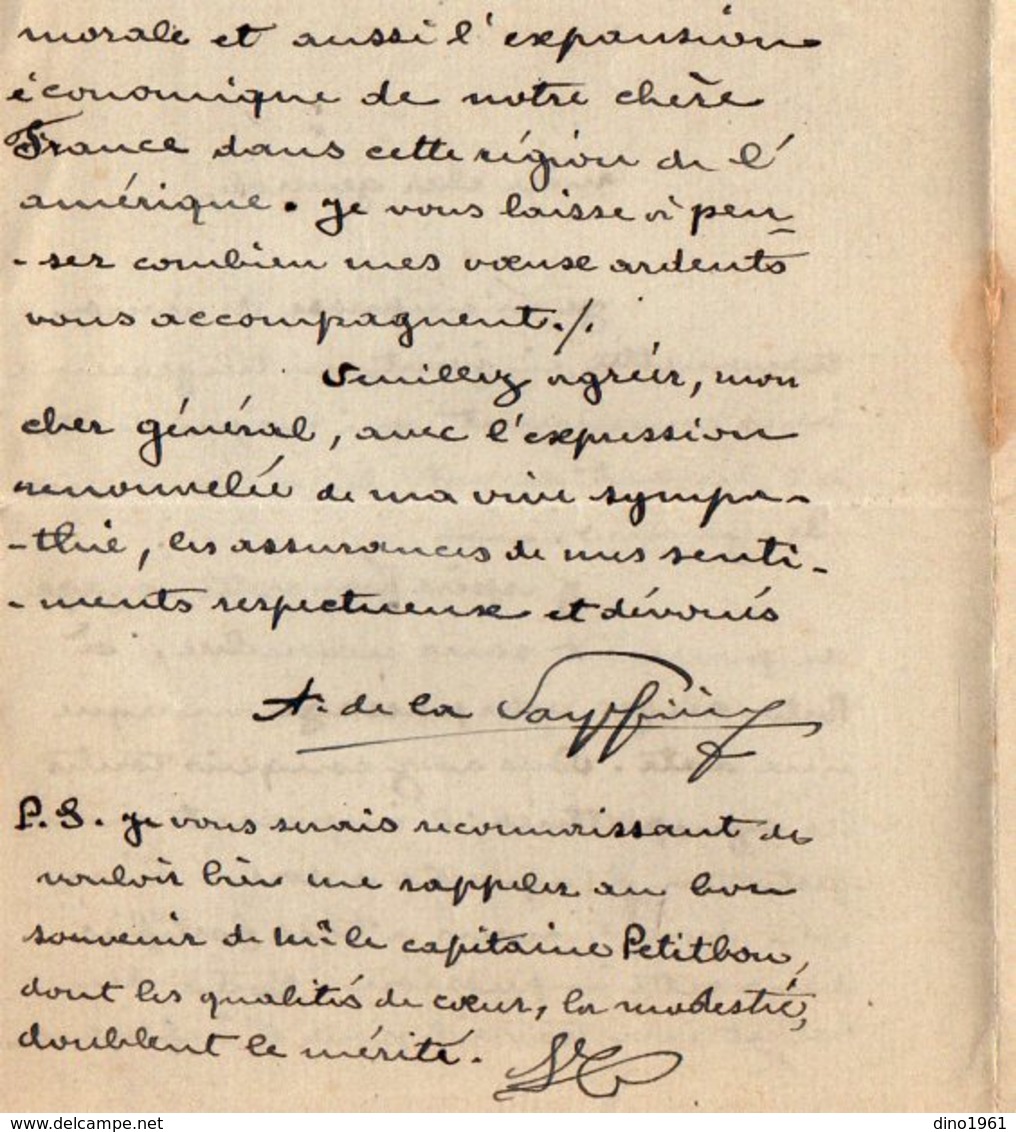 morale et aussi l'expansion
économique de notre chère
France dans cette région de l'
amérique. je vous laisse à pen
- ser combien mes vœux ardents
vous accompagnent./.
Veuillez agréer, mon
cher général, avec l'expression
renouvelée de ma vive sympa-
-thie, les assurances de mes senti-
-ments respectueux et dévoués
A. de la
P.S. je vous serais reconnaissant de
vouloir bien me rappeler au bon
souvenir de Mr le capitaine Petitbon,
dont les qualités de cœur, la modestie,
doublent le mérite.
www.delcampe.net
dino1961